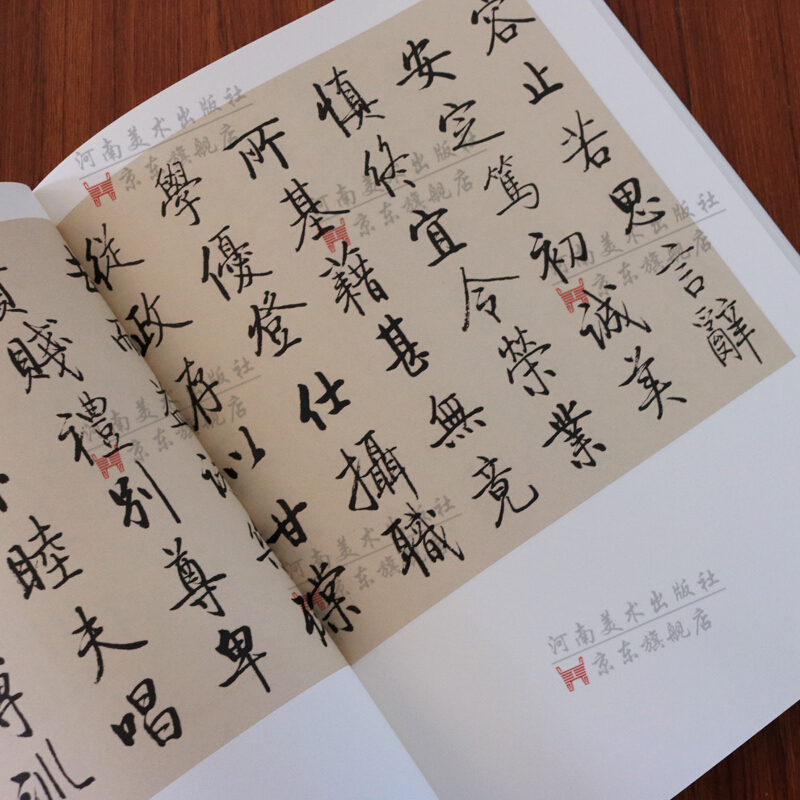 容止若思言辭
安定篤初誠美
慎終宜令榮業
所基藉甚無竟
學優登仕攝職
從政存以甘棠
賤禮別尊卑
睦夫唱
傅訓
河南美术出版社
京东旗舰店
河南美术出版社
京东旗舰店
河南美术出版社
京东旗舰店
河南美术出版社
京东旗舰店
河南美术出版社
京东旗舰店
河南美术出版社
京东旗舰店